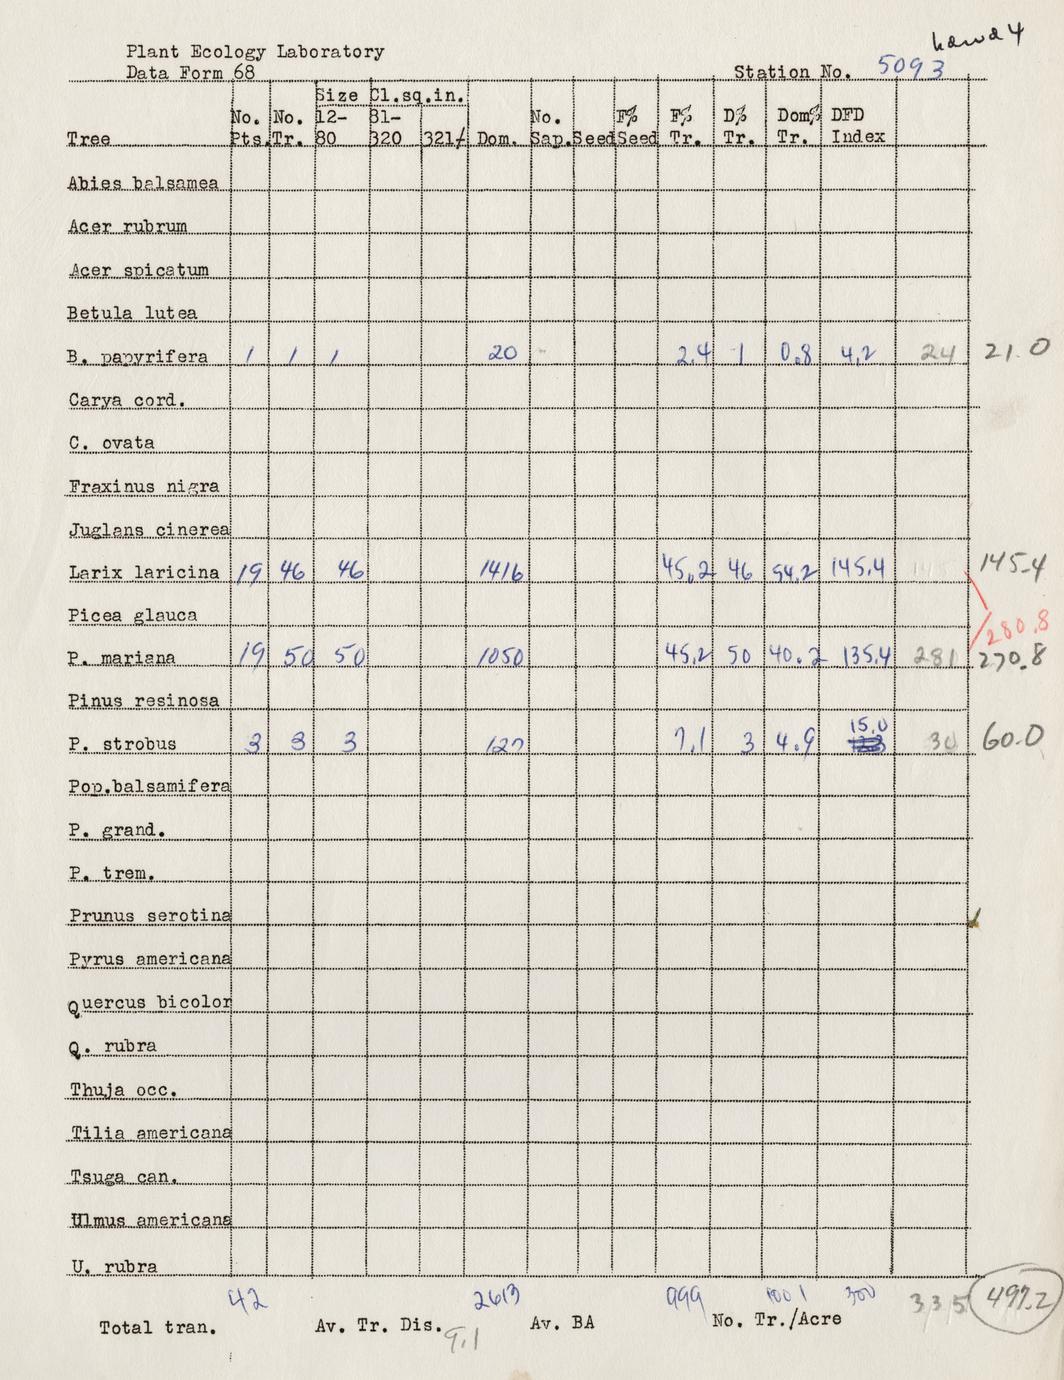 Plant Ecology Laboratory
Data Form 68
Station No. 5093
Size Cl.sq.in.
No. No. 12- 81- No. F% F% D% Dom% DFD
Tree Pts. Tr. 80 320 321/ Dom. Sap. Seed Seed Tr. Tr. Tr. Index
Abies balsamea
Acer rubrum
Acer spicatum
Betula lutea
B. papyrifera 1 1 1 20 2.4 1 0.8 4.2 24 21.0
Carya cord.
C. ovata
Fraxinus nigra
Juglans cinerea
Larix laricina 19 46 46 1416 45.2 46 54.2 145.4 145.4
Picea glauca
280.8
P. mariana 19 50 50 1050 45.2 50 40.2 135.4 281 270.8
Pinus resinosa
15.0
P. strobus 3 3 3 127 7.1 3 4.9 30 60.0
Pop.balsamifera
P. grand.
P. trem.
Prunus serotina
Pyrus americana
Quercus bicolor
Q. rubra
Thuja occ.
Tilia americana
Tsuga can.
Ulmus americana
U. rubra
42 2613 999 1001 300 335 497.2
Total tran. Av. Tr. Dis. 9.1 Av. BA No. Tr./Acre